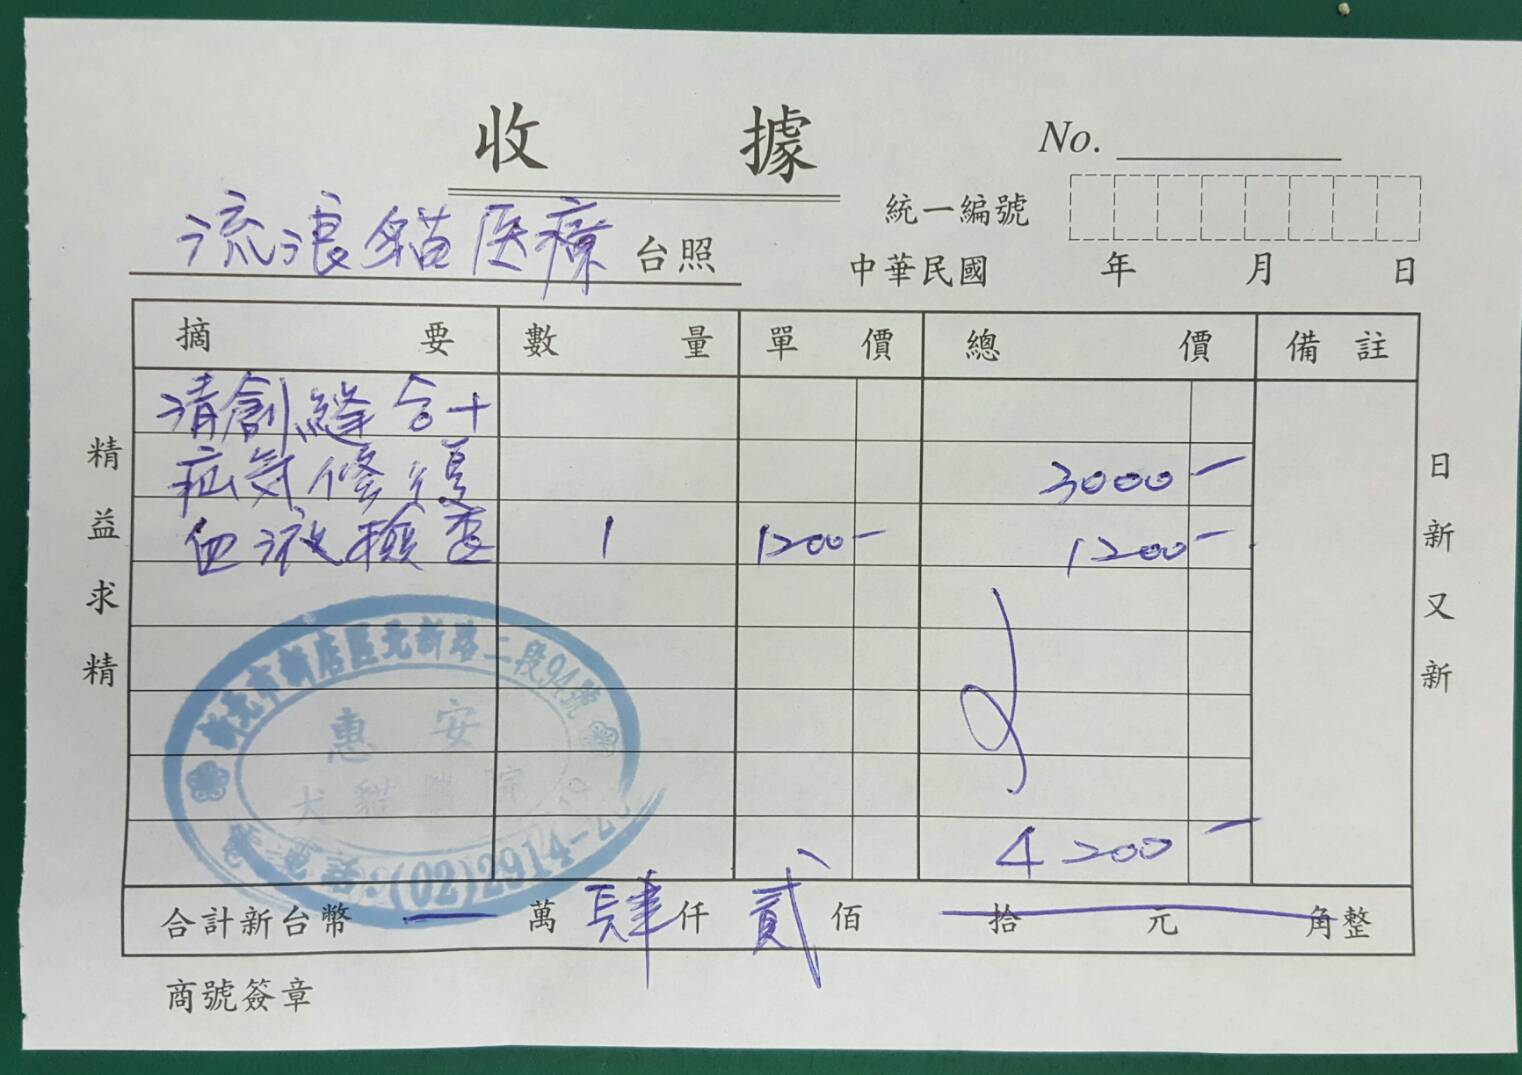 收 據
No.
統一編號
流浪貓医療 台照
中華民國 年 月 日
摘 要 數 量 單 價 總 價 備 註
清創縫合+
疝気修復 3000-
血液檢查 1 1200- 1200-
4200-
合計新台幣 一 萬 肆 仟 貳 佰 拾 元 角整
商號簽章
精益求精
日新又新
新北市新店區北新路二段94號
惠安
犬貓醫院
電話:(02)2914-2